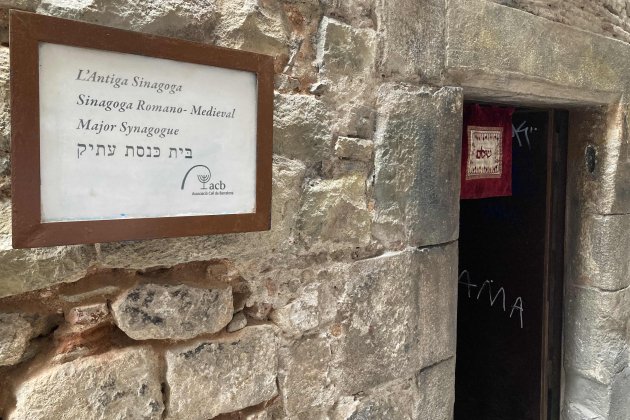 L'Antiga Sinagoga
Sinagoga Romano- Medieval
Major Synagogue
בית כנסת עתיק
acb
Associació Call de Barcelona
שלום
AMA